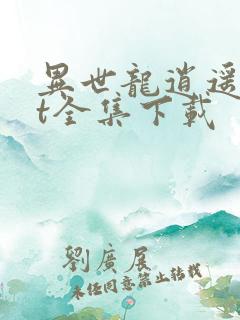 異世龍逍遥
t全集下載
劉廣展
未经同意禁止转载